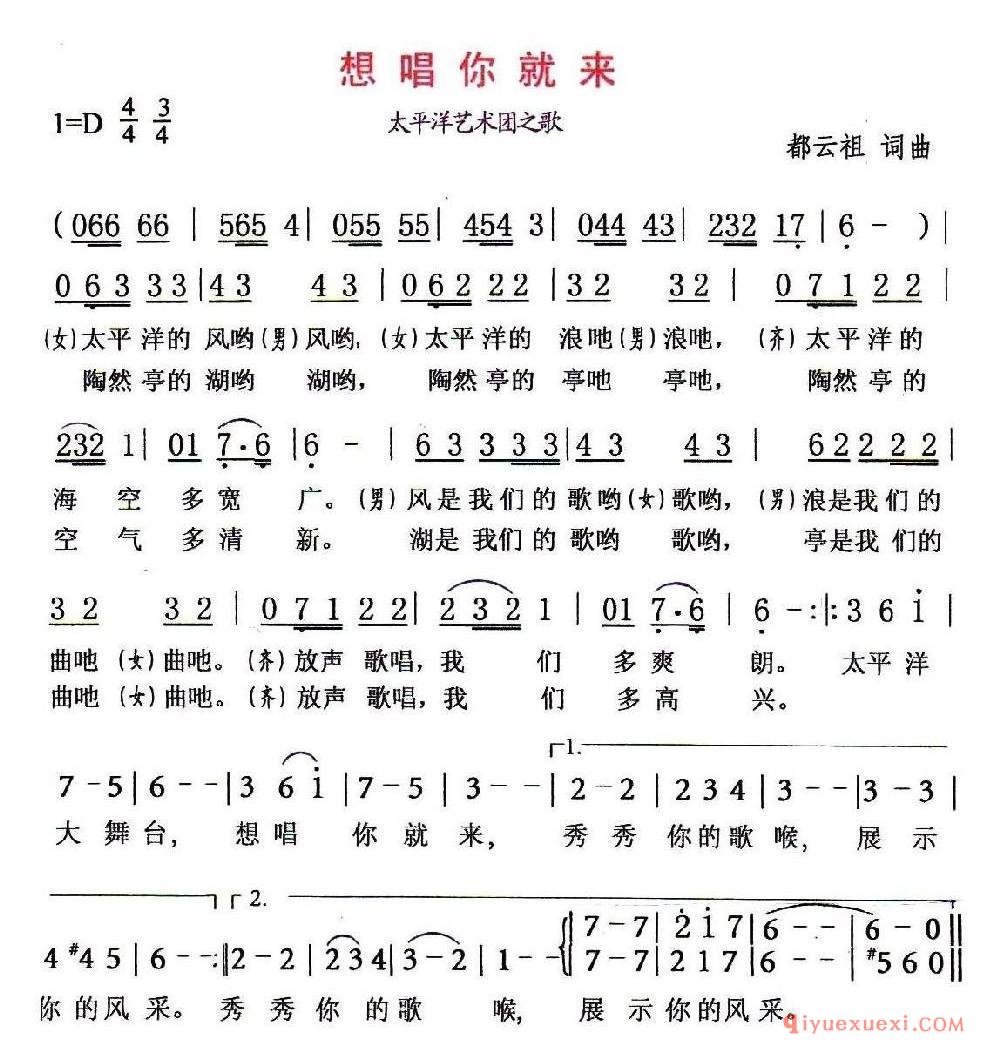 想唱你就来
1=D 4/4 3/4 太平洋艺术团之歌
都云祖 词曲
( 066 66 | 565 4 | 055 55 | 454 3 | 044 43 | 232 17 | 6 - ) |
0 6 3 3 3 3 | 4 3 4 3 | 0 6 2 2 2 2 | 3 2 3 2 | 0 7 1 2 2 |
(女)太平洋的 风哟(男)风哟, (女)太平洋的 浪吔(男)浪吔, (齐)太平洋的
陶然亭的 湖哟 湖哟, 陶然亭的 亭吔 亭吔, 陶然亭的
232 1 | 01 7·6 | 6 - | 6 3 3 3 3 | 4 3 4 3 | 6 2 2 2 2 |
海 空 多宽 广。(男)风是我们的歌哟(女)歌哟, (男)浪是我们的
空 气 多清 新。 湖是我们的 歌哟 歌哟, 亭是我们的
3 2 3 2 | 0 7 1 2 2 | 2 3 2 1 | 01 7·6 | 6 - :|: 3 6 i |
曲吔(女)曲吔。(齐)放声 歌唱,我 们 多爽 朗。 太平洋
曲吔(女)曲吔。(齐)放声 歌唱,我 们 多高 兴。
1.
7 - 5 | 6 - - | 3 6 i | 7 - 5 | 3 - - | 2 - 2 | 2 3 4 | 3 - - | 3 - 3 |
大 舞台, 想唱 你 就 来, 秀 秀 你的歌 喉, 展 示
2.
4 #4 5 | 6 - - :‖ 2 - 2 | 2 3 4 | 3 - 2 | 1 - - | 7 - 7 | 2 i 7 | 6 - - | 6 - 0 ‖
7 - 7 | 2 1 7 | 6 - - | #5 6 0 ‖
你的风 采。 秀 秀 你 的 歌 喉, 展 示 你的风 采。
qiyuexuexi.com